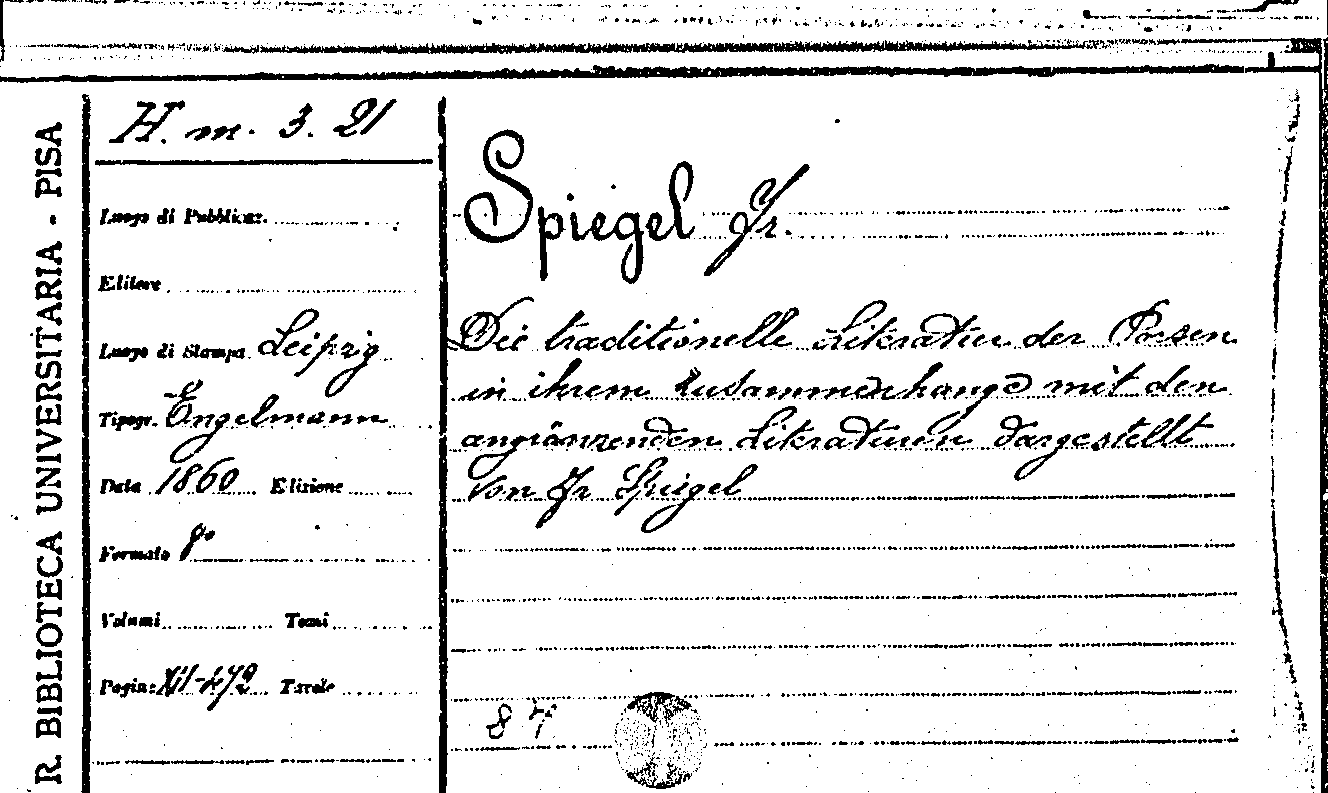 R. BIBLIOTECA UNIVERSITARIA - PISA
H. m. 3. 21
Luogo di Pubblicaz.
Editore
Luogo di Stampa Leipzig
Tipogr. Engelmann
Data 1860 Edizione
Formato 8º
Volumi Tomi
Pagine XII-472 Tavole
Spiegel Fr.
Die traditionelle Literatur der Parsen
in ihrem Zusammenhange mit den
angränzenden Literaturen dargestellt
von Fr Spiegel
87